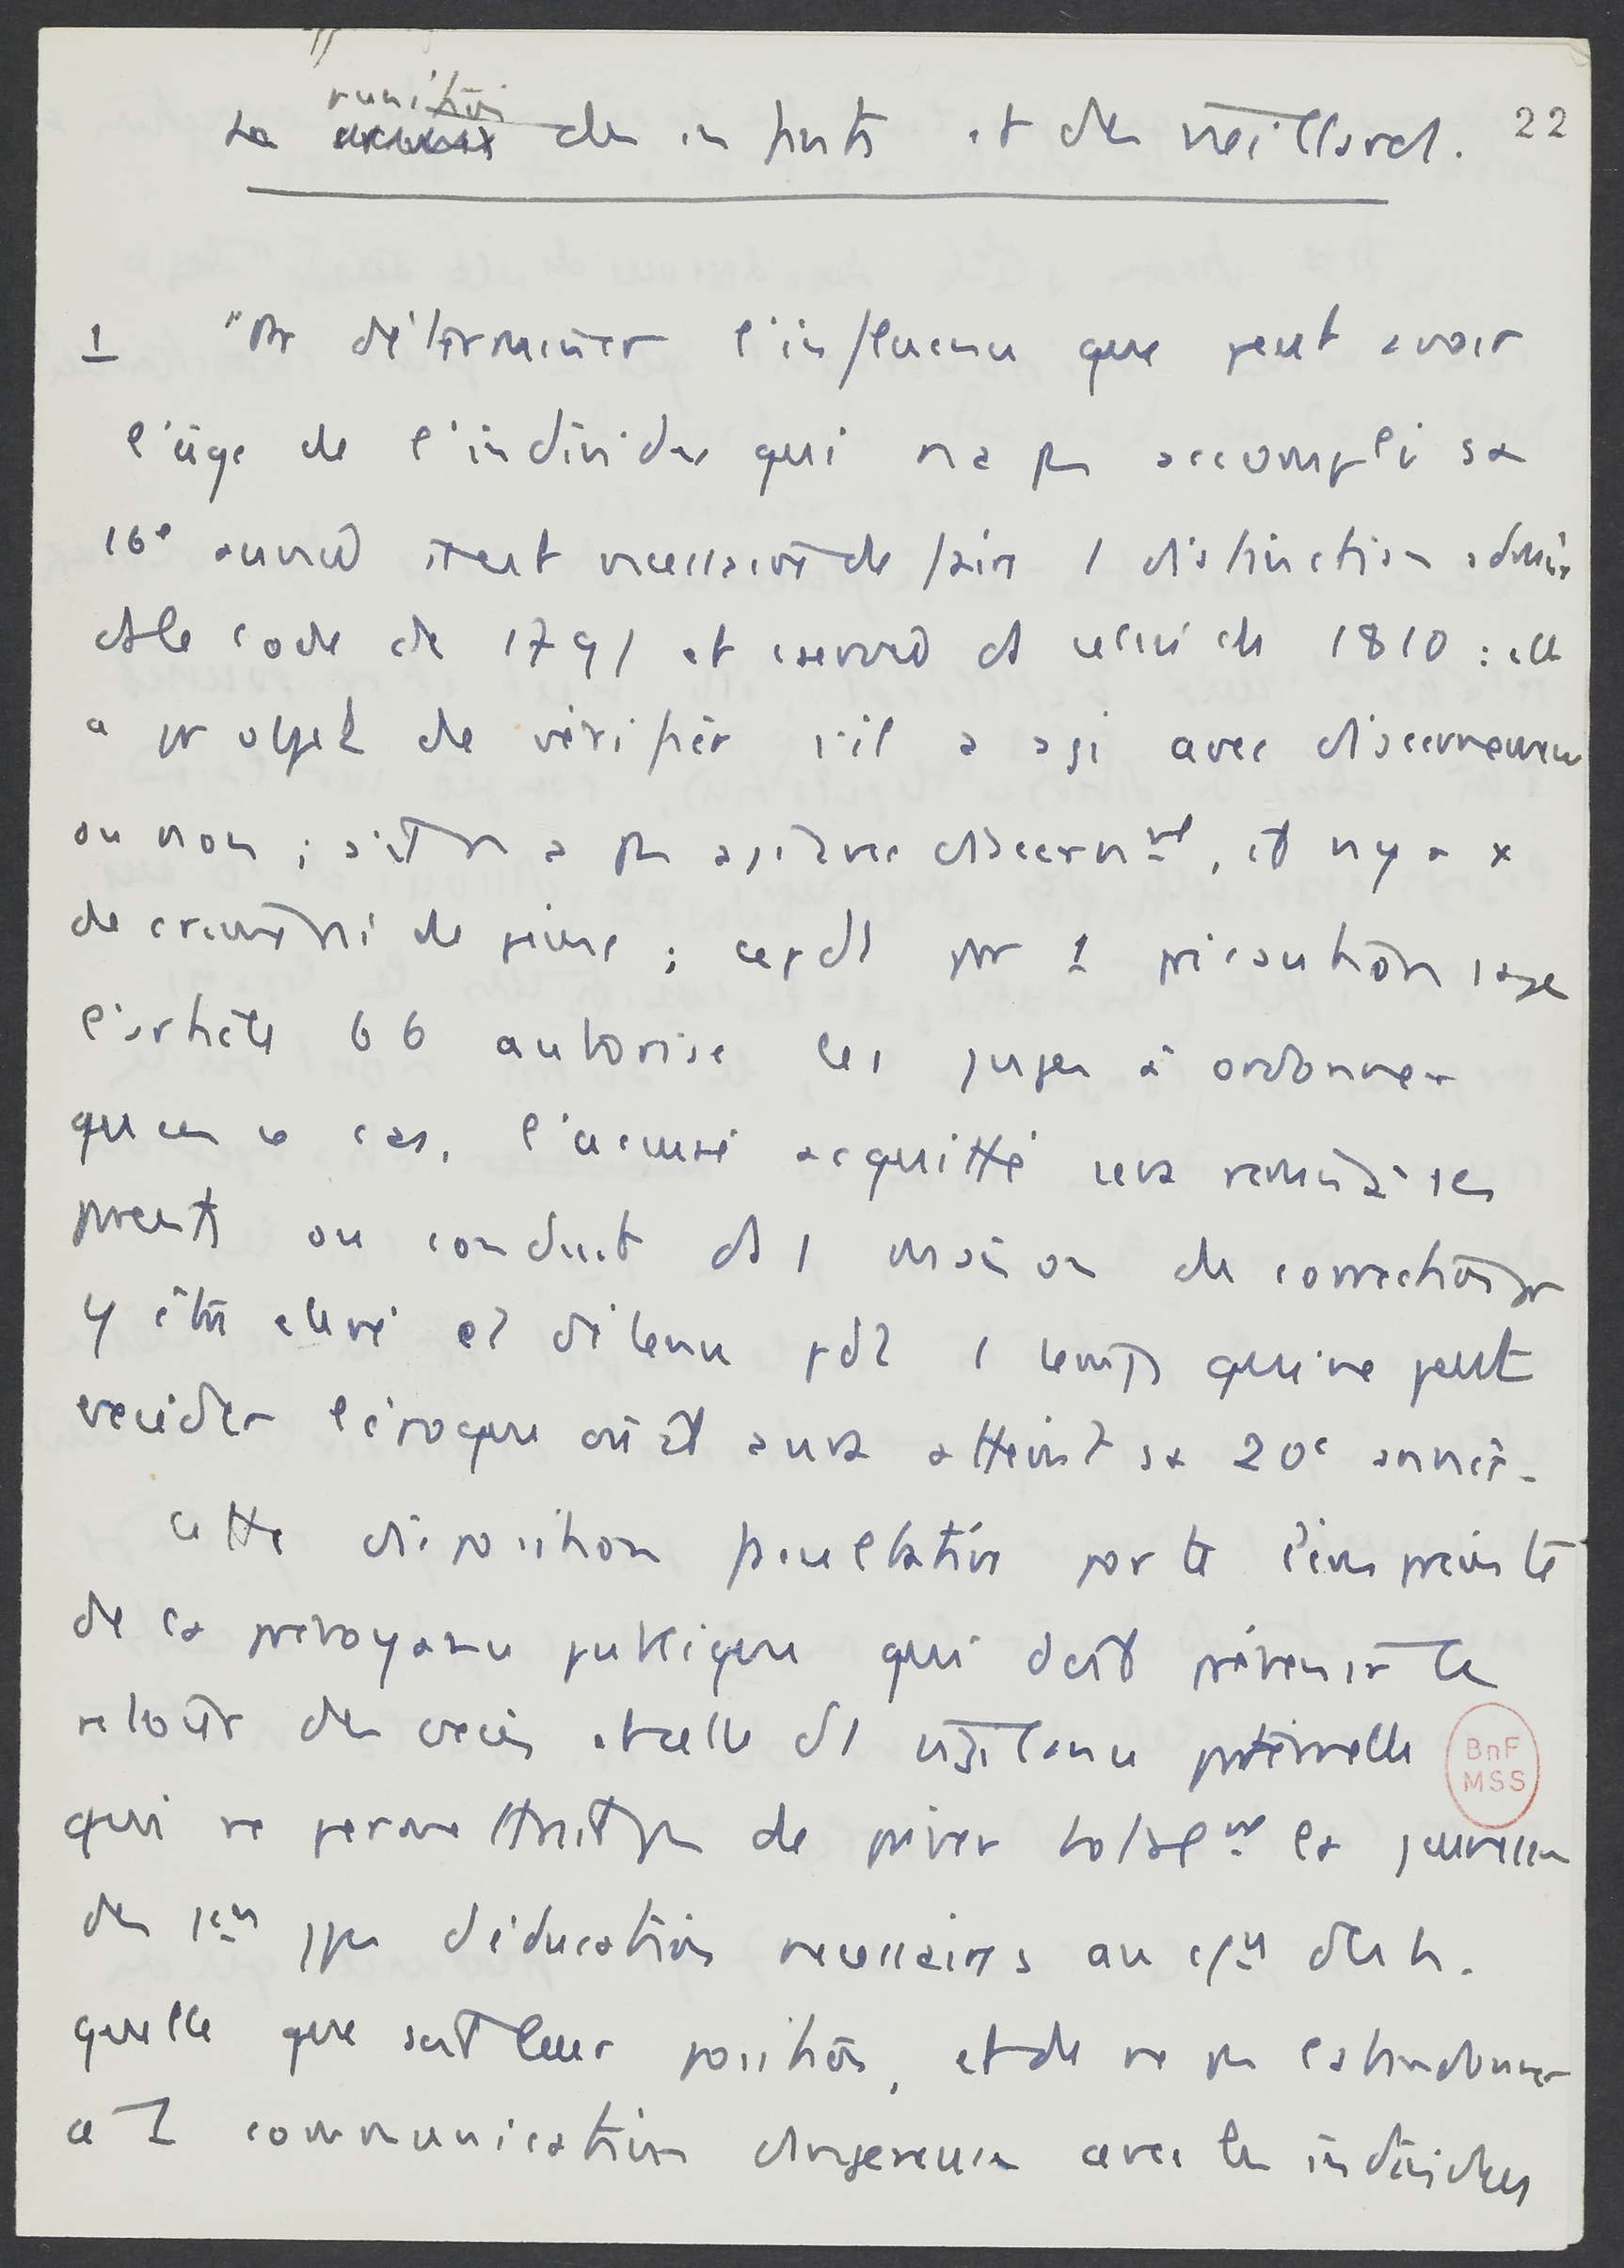 La punition des enfants et des vieillards. 22
1 "Pr déterminer l'influence que peut avoir
l'âge de l'individu qui n'a pas accompli sa
16e année il est nécessaire de faire 1 distinction admise
ds le code de 1791 et conservée ds celui de 1810 : elle
a pr objet de vérifier s'il a agi avec discernement
ou non ; s'il n'a pas agi avec discernmt, il n'y a x
de crime ni de peine ; cepdt pr 1 précaution sage
l'article 66 autorise les juges à ordonner
qu'en ce cas, l'accusé acquitté sera remis à ses
parents ou conduit ds 1 maison de correction pr
y être élevé et détenu pdt 1 temps qui ne peut
excéder l'époque où il aura atteint sa 20e année.
Cette disposition facultative porte l'empreinte
de la prévoyance publique qui doit prévenir le
retour des excès et celle d'1 vigilance paternelle
qui ne permettrait pas de priver totalmt la jeunesse
des 1ers ppes d'éducation nécessaires au des h.
quelle que soit leur position, et de ne pas l'abandonner
à 1 communication dangereuse avec les individus
BnF
MSS